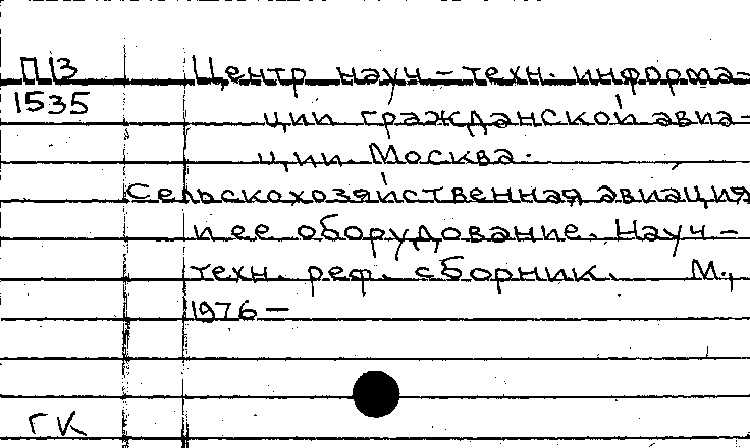 П13 Центр науч-техн. информа-
1535 ции гражданской авиа-
ции. Москва.
Сельскохозяйственная авиация
и ее оборудование. Науч-
техн. реф. сборник. М.,
1976 —
ГК